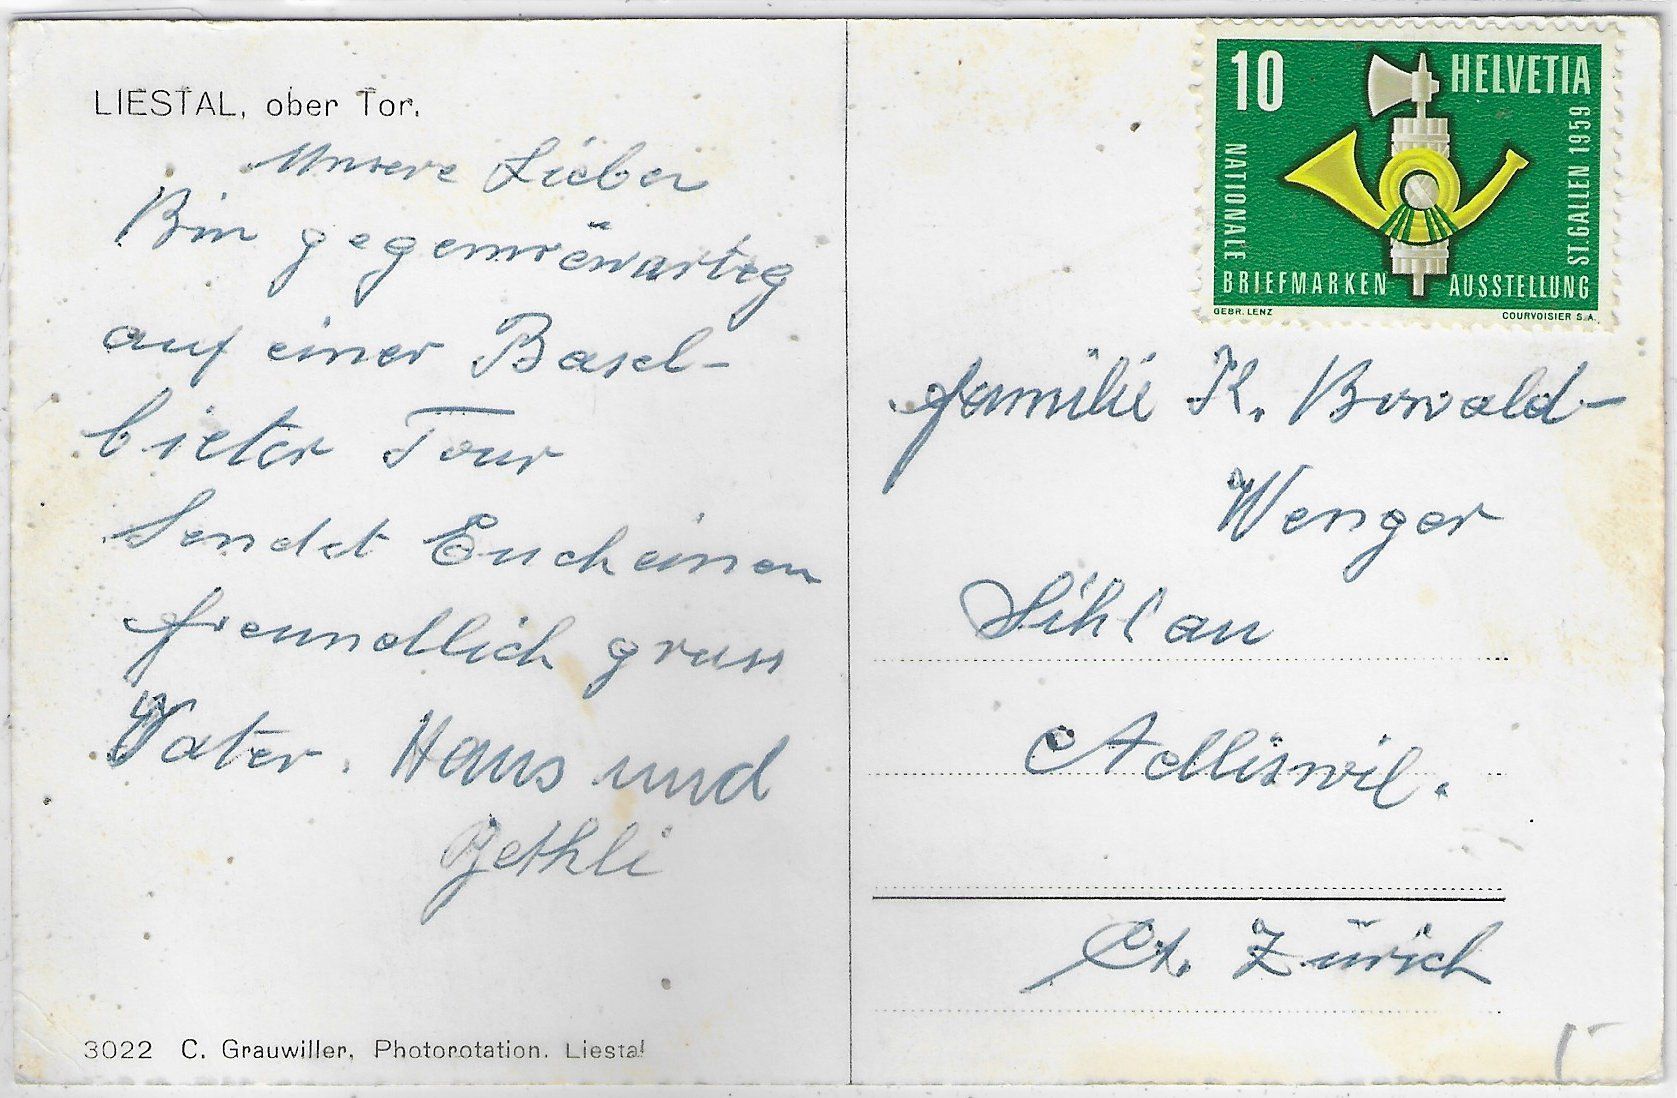 LIESTAL, ober Tor.
Unsere Lieben
Bin gegenwärtig
auf einer Basel-
bieter Tour
Sendet Euch einen
freundlich gruss
Vater. Hans und
Bethli
3022 C. Grauwiller, Photorotation. Liestal
10 HELVETIA
NATIONALE
BRIEFMARKEN AUSSTELLUNG
ST.GALLEN 1959
GEBR. LENZ COURVOISIER S.A.
familie K. Bowald-
Wenger
Sihlau
Adliswil.
Ct. Zürich